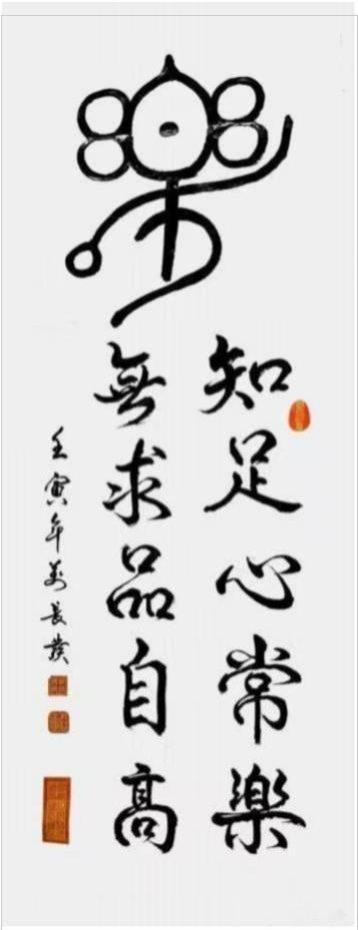 樂
知足心常樂
無求品自高
壬寅年萬長發